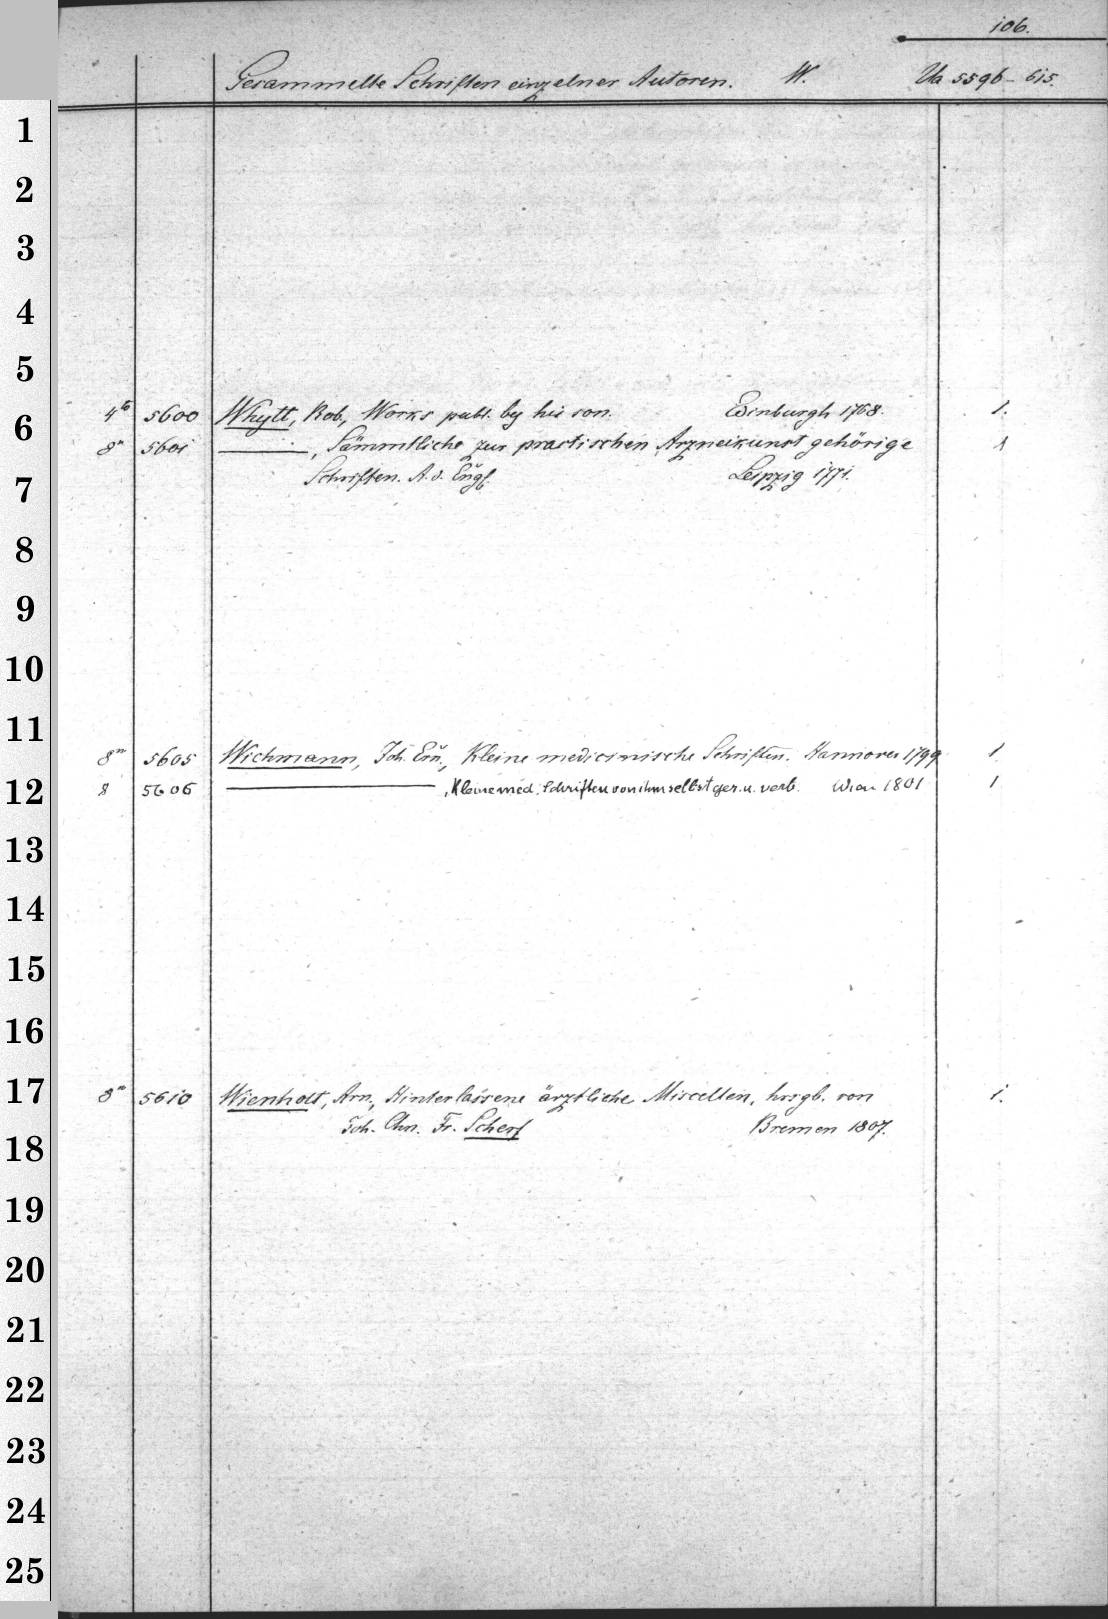 106.
Gesammelte Schriften einzelner Autoren. W. Ua 5596–615.
1
2
3
4
5
6
4to 5600 Whytt, Rob., Works publ. by his son. Edinburgh 1768. 1.
8o 5601 ———, Sämmtliche zur practischen Arzneikunst gehörige 1
7
Schriften. A. d. Engl. Leipzig 1771.
8
9
10
11
8o 5605 Wichmann, Joh. Ern., Kleine medicinische Schriften. Hannover 1799 1
12
8 5606 ———, Kleine med. Schriften von ihm selbst ges. u. verb. Wien 1801 1
13
14
15
16
17
8o 5610 Wienholt, Arn., Hinterlassene ärztliche Miscellen, hrsgb. von 1.
Joh. Chn. Fr. Scherf Bremen 1807.
18
19
20
21
22
23
24
25